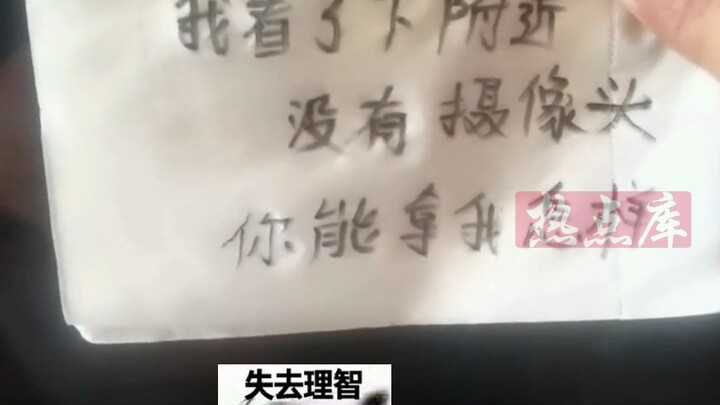 我看了下附近
没有摄像头
你能拿我怎样
热点库
失去理智